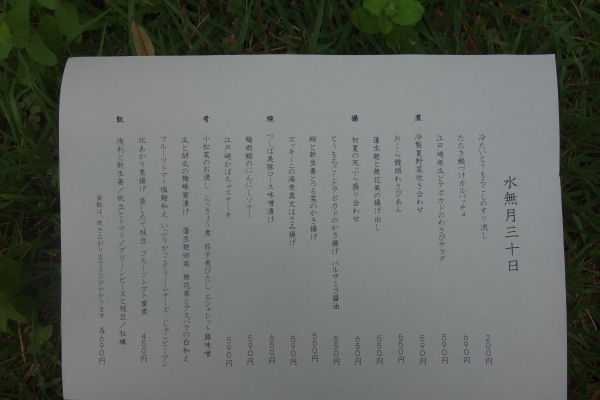 水無月三十日
冷たいとうもろこしのすり流し 200円
たたき鰻つけカルパッチョ 690円
江戸崎南瓜とアボカドのわさびサラダ 590円
煮 冷製夏野菜炊き合わせ 550円
おくら饅頭わさびあん 550円
蓬生麩と無花果の揚げ出し 550円
揚 初夏の天ぷら盛り合わせ 650円
とうもろこしとアボカドのかき揚げ バルサミコ醤油 550円
蛸と新生姜とつる菜のかき揚げ 550円
ズッキーニの海老真丈はさみ揚げ 590円
焼 つくば美豚ロース味噌漬け 650円
梅雨鯛のにんにくソテー
江戸崎かぼちゃステーキ 590円
肴 小松菜のお浸し らっきょう煮 茄子煮びたし エシャレット諸味噌
瓜と胡瓜の麹蜂蜜漬け 蓬生麩田楽 無花果とアスパラの白和え
フルーツトマト塩麹和え いぶりがっこクリームチーズ じゃこピーマン
北あかり素揚げ 蒸したて枝豆 フルーツトマト蜜煮 450円
飯 浅利と新生姜/帆立とトマト/グリーンピースと枝豆/牡蠣
釜飯は、炊き上がりまで30分かかります 各690円